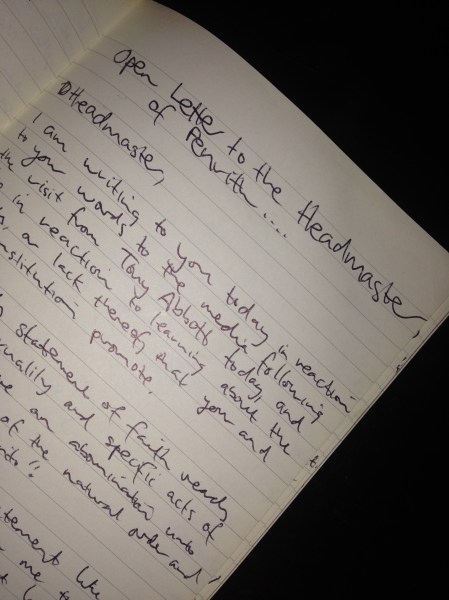 Open Letter to the Headmaster,
of Penrith....
Headmaster,
I am writing to you today in reaction
to your words to the media following
the visit from Tony Abbott today, and
in reaction to learning about the
or lack thereof, that you and
institution promote.
statement of faith
and specific acts of
an abomination unto
of the natural order and
statement like
me